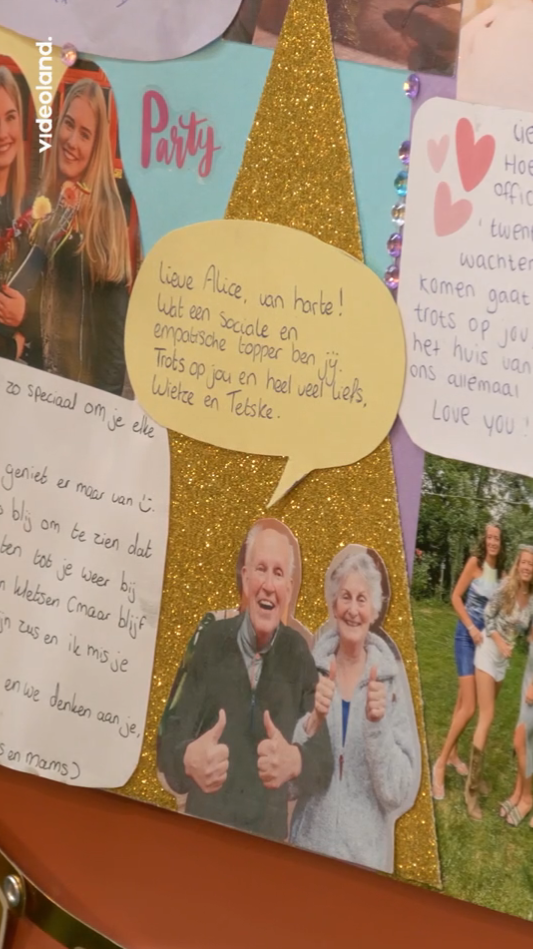 videoland.
Party
Lieve Alice, van harte!
Wat een sociale en
empatische topper ben jij.
Trots op jou en heel veel liefs,
Wietze en Tetske.
zo speciaal om je elke
geniet er maar van
blij om te zien dat
ten tot je weer bij
n kletsen (maar blijf
jn zus en ik mis je
en we denken aan je,
s en mams)
Lie
Hoe
offic
'twent
wachten
komen gaat
trots op jou
het huis van
ons allemaal
Love you!